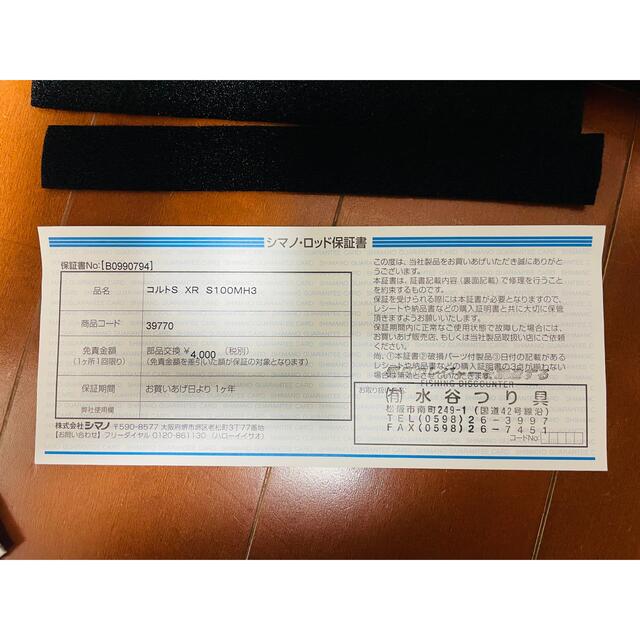 シマノ・ロッド保証書
保証書No:[B0990794]
品名 コルトS XR S100MH3
商品コード 39770
免責金額 部品交換 ¥4,000 (税別)
(1ヶ所1回限り) (免責金額を差引いた額が保証の対象となります)
保証期間 お買いあげ日より 1ヶ年
弊社使用欄
株式会社シマノ 〒590-8577 大阪府堺市堺区老松町3丁77番地
【お問い合わせ】フリーダイヤル 0120-861130 (ハローイイサオ)
この度は、当社製品をお買いあげいただき誠にありがと
うございます。
本証書は、証書記載内容(裏面記載)で修理を行うこと
を約束するものです。
保証を受けられる際には本証書が必要となりますので、
レシートや納品書などの購入証明書と共に大切に保管
頂きますようお願いいたします。
保証期間内に正常なご使用状態で故障した場合には、
お買いあげ販売店、もしくは当社製品取扱い店にご依頼
ください。
尚、①本証書②破損パーツ付製品③日付の記載がある
レシートや納品書などの購入証明書の3点が揃わない
場合は
FISHING DISCOUNTER
お取り扱い
(有)水谷つり具
松阪市南町249-1 (国道42号線沿)
TEL(0598)26-3997
FAX(0598)26-7451
コードNo.